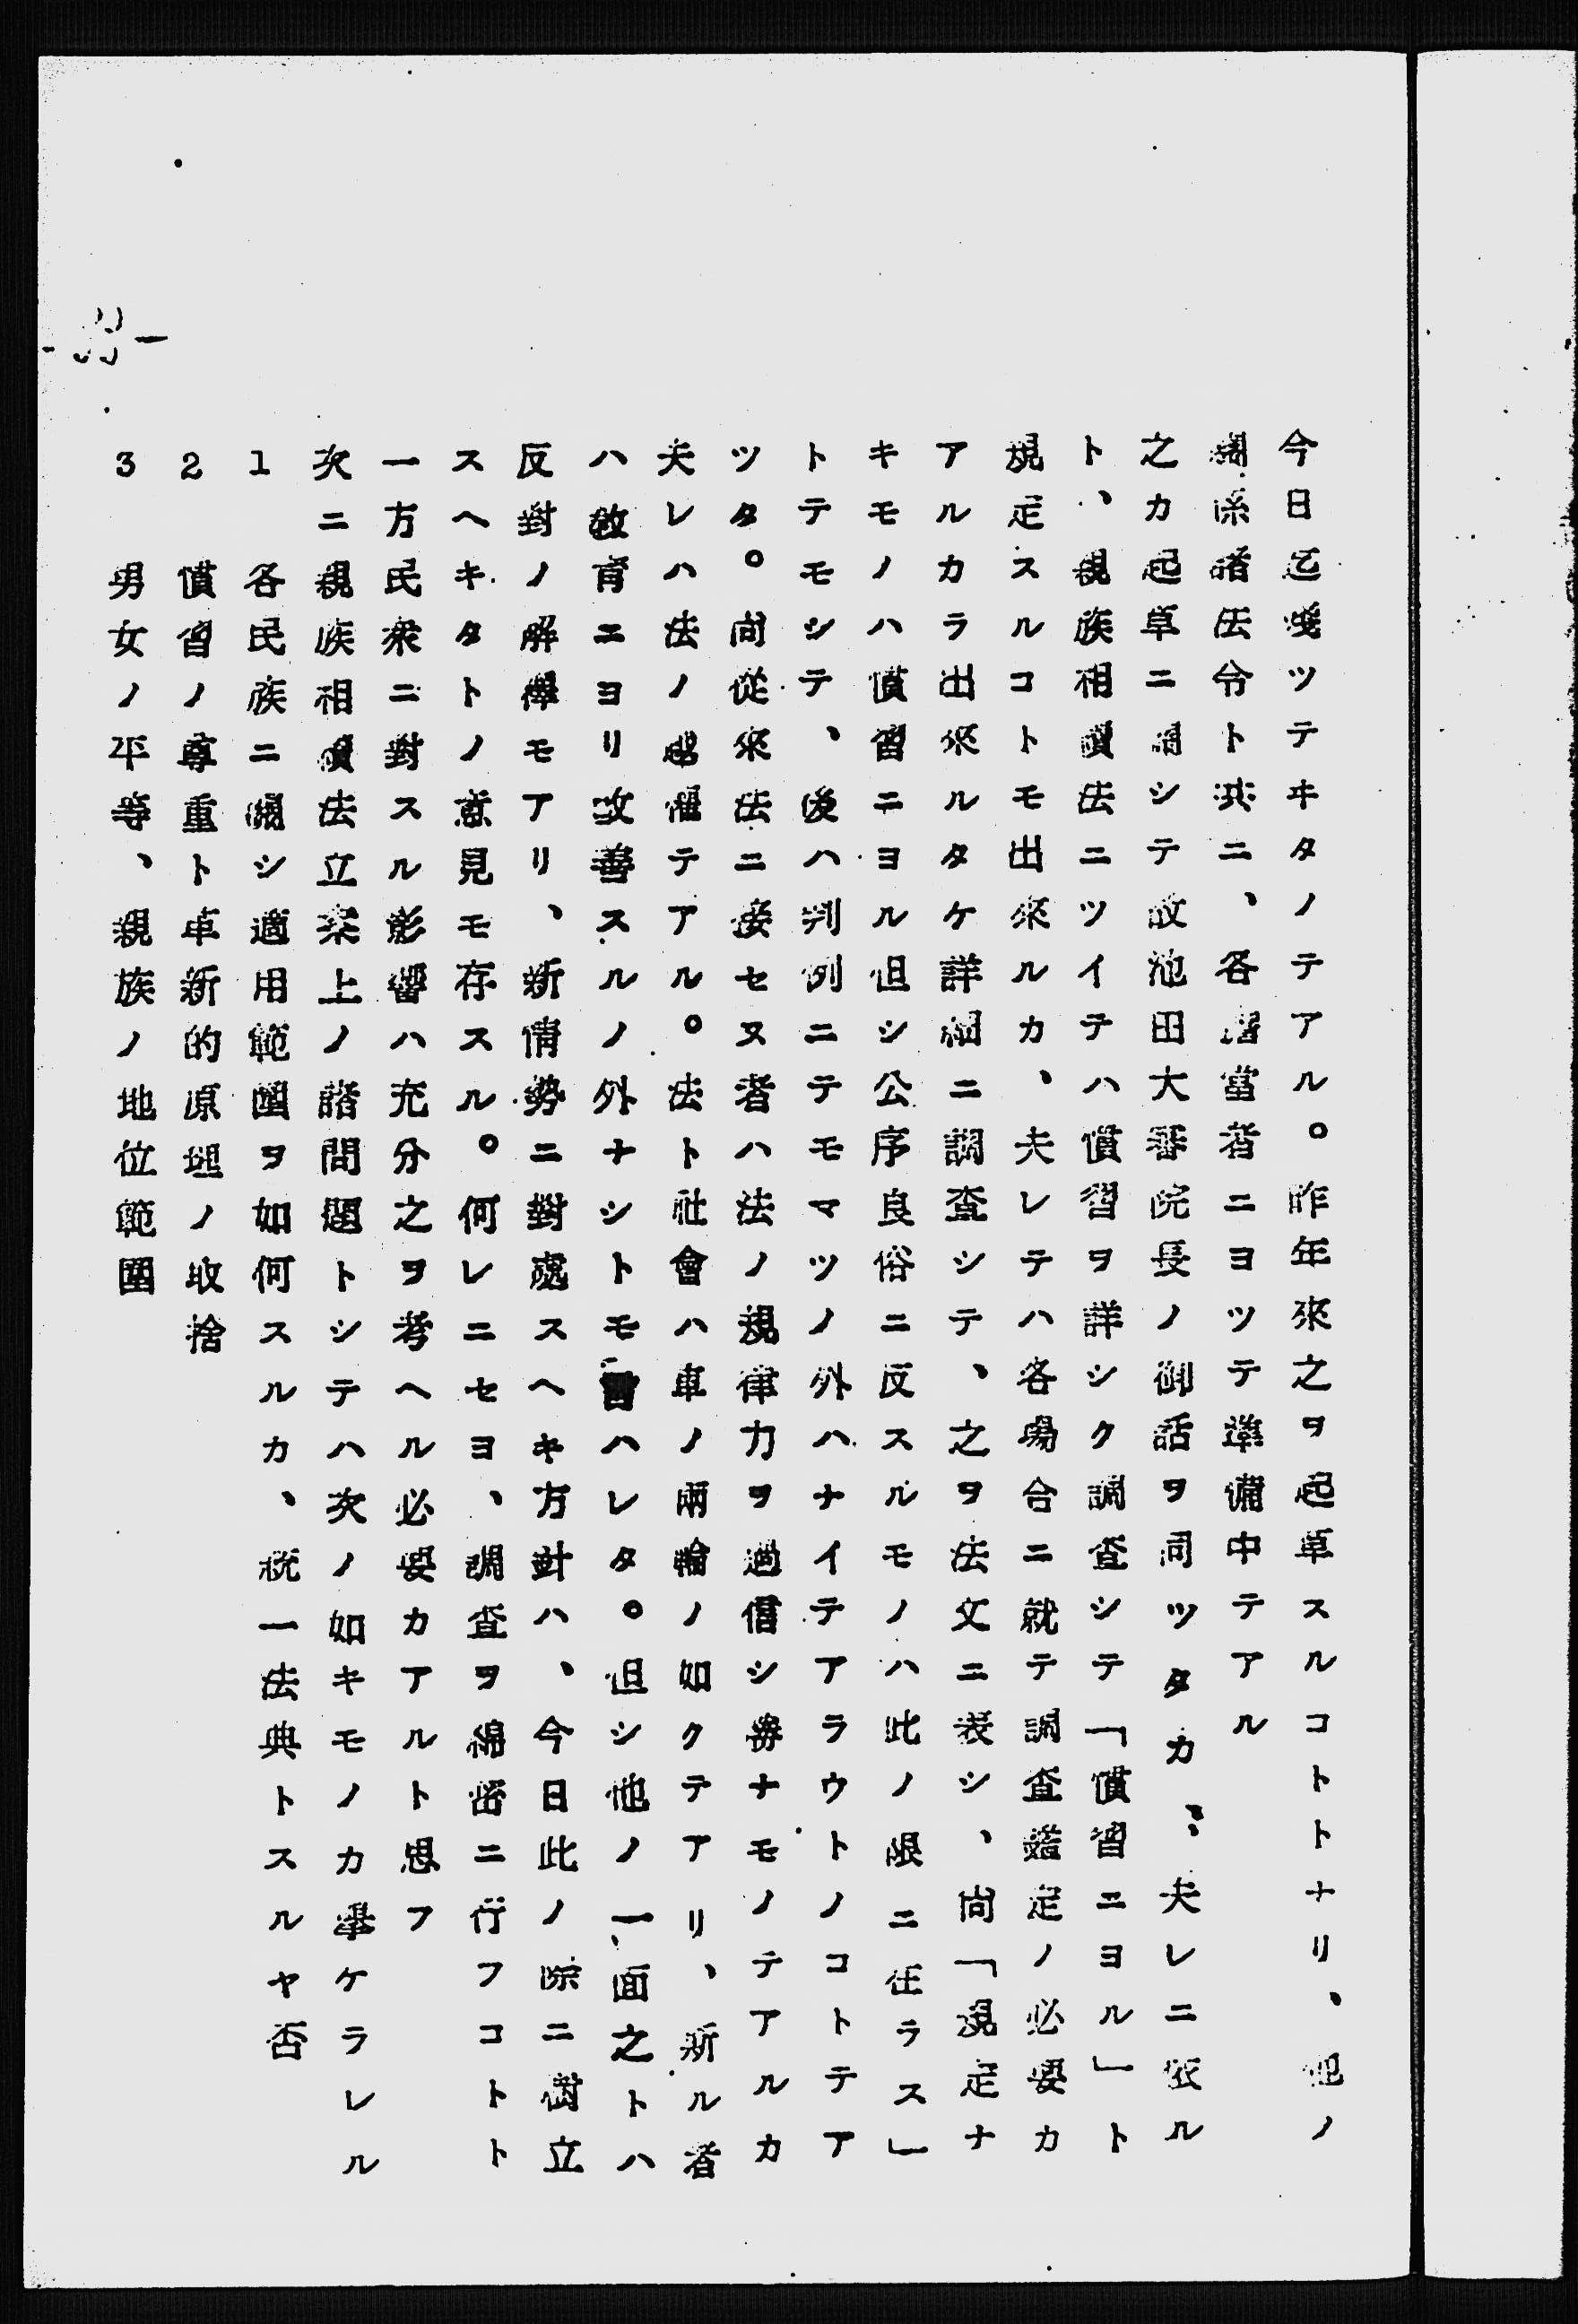 今日迄殘ツテヰタノテアル。昨年來之ヲ起草スルコトトナリ、他ノ
關係諸法令ト共ニ、各當者ニヨツテ準備中テアル
之カ起草ニ關シテ故池田大審院長ノ御話ヲ伺ツタカ、夫レニ依ル
ト、親族相續法ニツイテハ慣習ヲ詳シク調査シテ「慣習ニヨル」ト
規定スルコトモ出來ルカ、夫レテハ各場合ニ就テ調査鑑定ノ必要カ
アルカラ出來ルタケ詳細ニ調査シテ、之ヲ法文ニ表シ、尚「規定ナ
キモノハ慣習ニヨル但シ公序良俗ニ反スルモノハ此ノ限ニ在ラス」
トテモシテ、後ハ判例ニテモマツノ外ハナイテアラウトノコトテア
ツタ。尚從來法ニ接セヌ者ハ法ノ規律力ヲ過信シ勝ナモノテアルカ
夫レハ法ノ悲哀テアル。法ト社會ハ車ノ兩輪ノ如クテアリ、斯ル者
ハ敎育ニヨリ改善スルノ外ナシトモ曾ハレタ。但シ他ノ一面之トハ
反對ノ解釋モアリ、新情勢ニ對處スヘキ方針ハ、今日此ノ際ニ樹立
スヘキタトノ意見モ存スル。何レニセヨ、調査ヲ綿密ニ行フコトト
一方民衆ニ對スル影響ハ充分之ヲ考ヘル必要カアルト思フ
次ニ親族相續法立案上ノ諸問題トシテハ次ノ如キモノカ擧ケラレル
1 各民族ニ關シ適用範圍ヲ如何スルカ、統一法典トスルヤ否
2 慣習ノ尊重ト革新的原理ノ取捨
3 男女ノ平等、親族ノ地位範圍